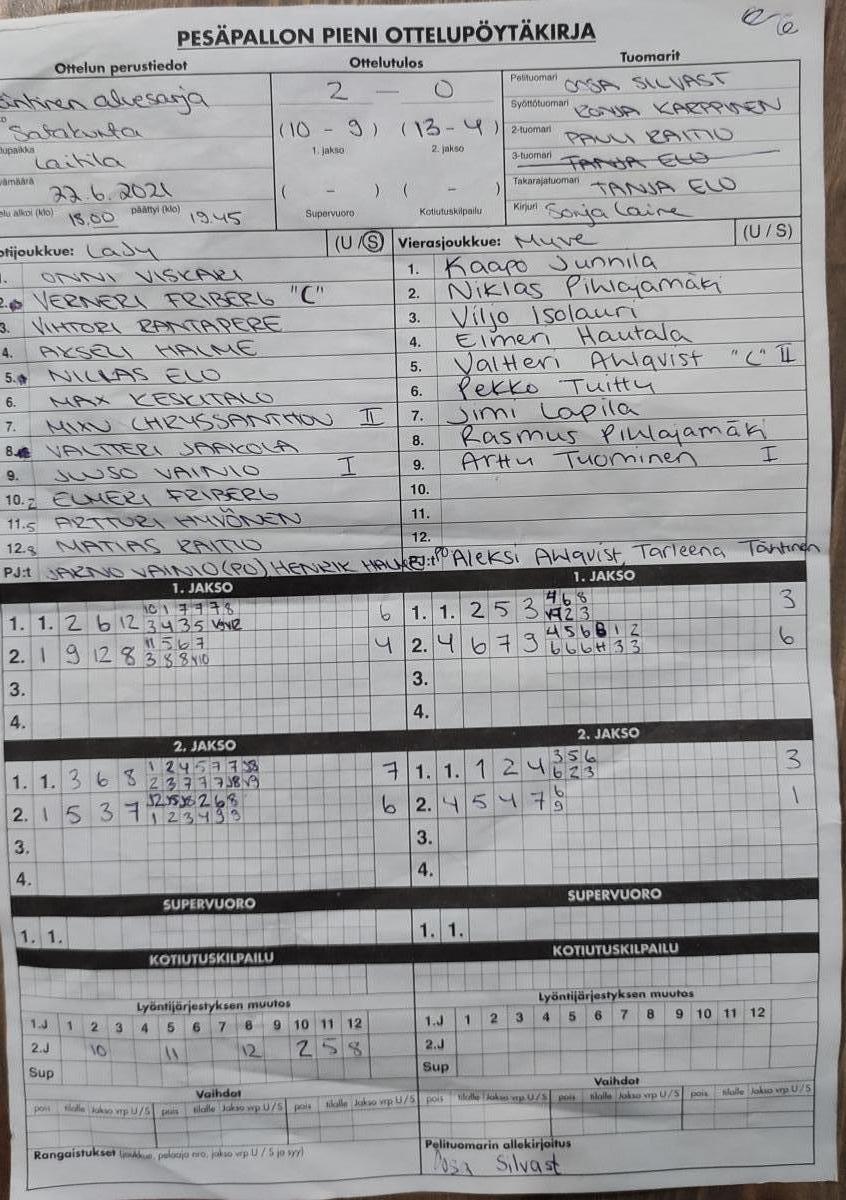 PESÄPALLON PIENI OTTELUPÖYTÄKIRJA
Ottelun perustiedot
aluesarja
Satakunta
Laitila
22.6.2021
alkoi (klo) 18.00 päättyi (klo) 19.45
Ottelutulos
2 – 0
(10 – 9) (13 – 4)
1. jakso 2. jakso
( – ) ( – )
Supervuoro Kotiutuskilpailu
Tuomarit
Pelituomari OSSA SILVAST
Syöttötuomari RONJA KARPPINEN
2-tuomari PAULI RAITIO
3-tuomari TANJA ELO
Takarajatuomari TANJA ELO
Kirjuri Sonja Laine
tijoukkue: Lady (U / S)
1. ONNI VISKARI
2. VERNERI FRIBERG "C"
3. VIHTORI RANTAPERE
4. AKSELI HALME
5. NIKLAS ELO
6. MAX KESKITALO
7. MIXU CHRYSSANTHOU II
8. VALTTERI JAAKOLA
9. JUUSO VAINIO I
10. 2 ELMERI FRIBERG
11. 5 ARTTURI HYVÖNEN
12. 8 MATIAS RAITIO
PJ:t JARNO VAINIO (PO) HENRIK
Vierasjoukkue: Myve (U / S)
1. Kaapo Junnila
2. Niklas Pihlajamäki
3. Viljo Isolauri
4. Elmeri Hautala
5. Valtteri Ahlqvist "C" II
6. Pekko Tuittu
7. Jimi Lapila
8. Rasmus Pihlajamäki
9. Arttu Tuominen I
10.
11.
12.
PJ:t PO Aleksi Ahlqvist, Tarleena Tähtinen
1. JAKSO
1. 1. 2 6 12 10 1 7 7 7 8 6
3 4 3 5
2. 1 9 12 8 11 5 6 7 4
3 8 8 V10
3.
4.
1. JAKSO
1. 1. 2 5 3 4 6 8 3
2 3
2. 4 6 7 9 4 5 6 8 1 2 6
6 6 6 H 3 3
3.
4.
2. JAKSO
1. 1. 3 6 8 1 2 4 5 7 7 7
2 3 7 7 7
2. 1 5 3 7 2 6 8 6
1 2 3 4 9 9
3.
4.
2. JAKSO
1. 1. 1 2 4 3 5 6 3
6 2 3
2. 4 5 4 7 6 1
9
3.
4.
SUPERVUORO
1. 1.
SUPERVUORO
1. 1.
KOTIUTUSKILPAILU
KOTIUTUSKILPAILU
Lyöntijärjestyksen muutos
1.J 1 2 3 4 5 6 7 8 9 10 11 12
2.J 10 11 12 2 5 8
Sup
Lyöntijärjestyksen muutos
1.J 1 2 3 4 5 6 7 8 9 10 11 12
2.J
Sup
Vaihdot
pois tilalle Jakso vrp U / S pois tilalle Jakso vrp U / S pois tilalle Jakso vrp U / S
Vaihdot
pois tilalle Jakso vrp U / S pois tilalle Jakso vrp U / S pois tilalle Jakso vrp U / S
Rangaistukset (joukkue, pelaaja nro, jakso vrp U / S ja syy)
Pelituomarin allekirjoitus
Ossa Silvast